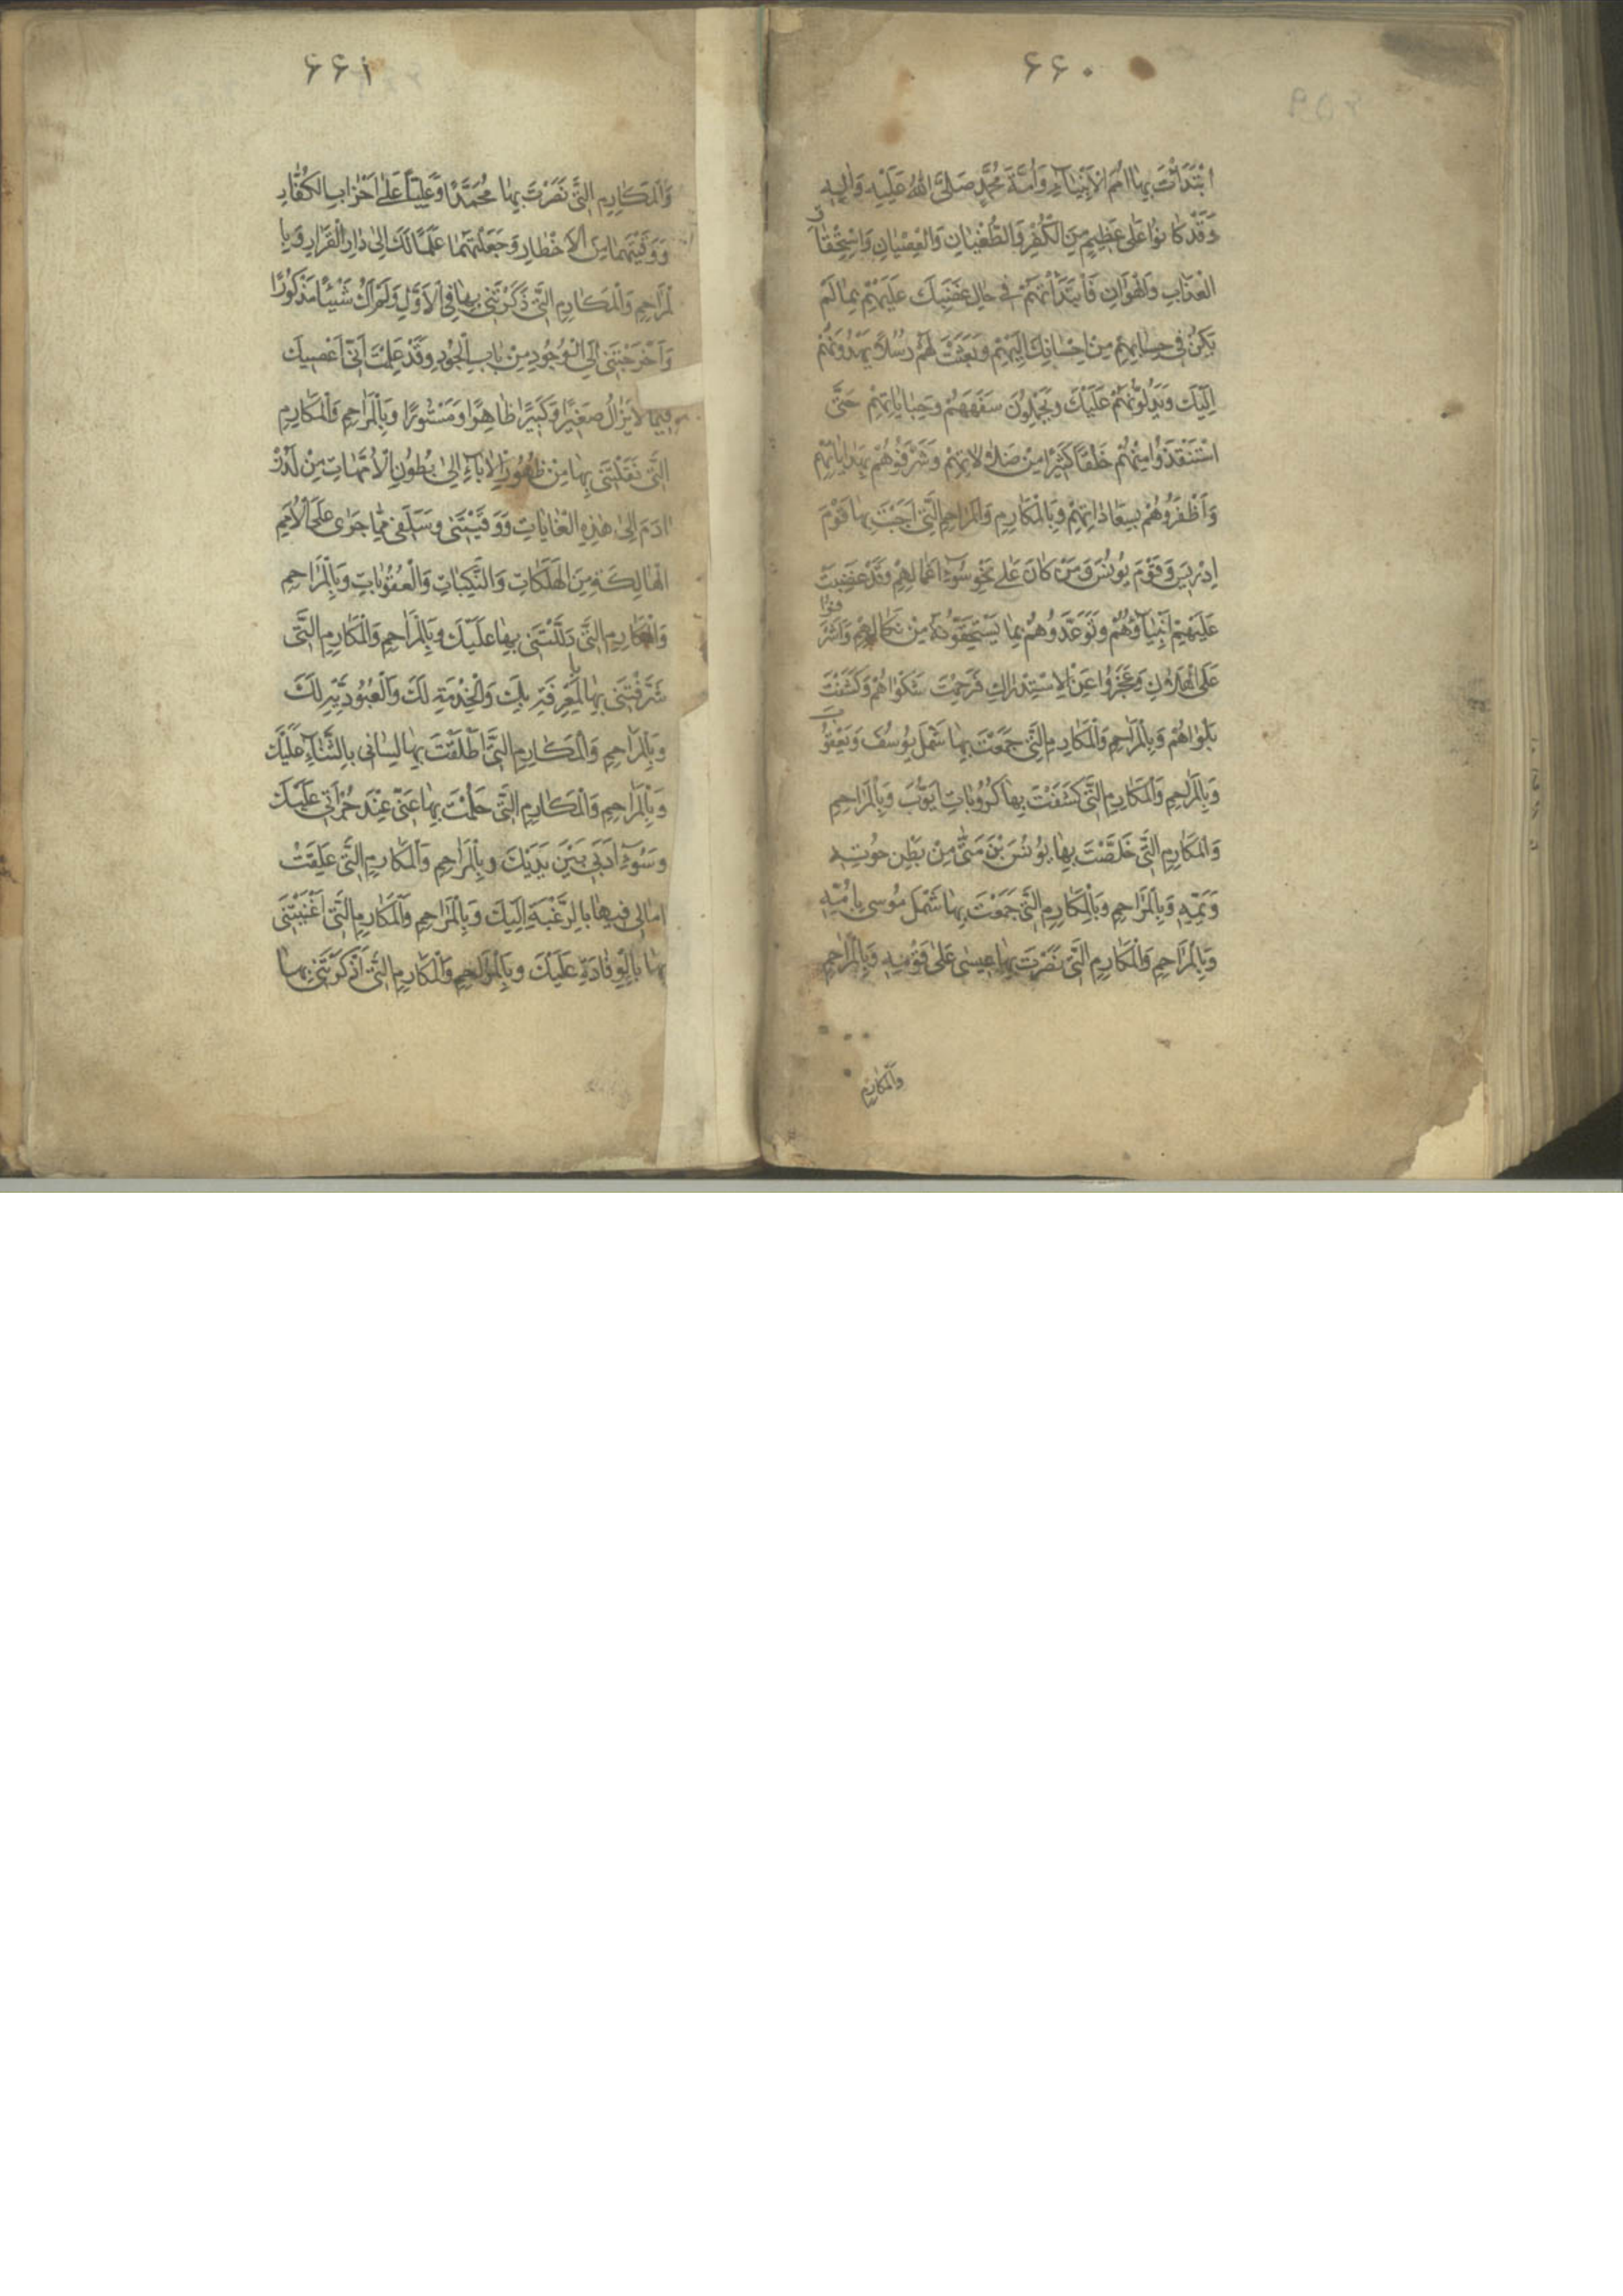 ۶۶۰
ابْتَدَأْتَ بِهٰا اُمَمَ الْاَنْبِيٰآءِ وَاُمَّةَ مُحَمَّدٍ صَلَّى اللهُ عَلَيْهِ وَاٰلِهِ
وَقَدْ كٰانُوا عَلىٰ عَظِيمٍ مِنَ الْكُفْرِ وَالطُّغْيٰانِ وَالْعِصْيٰانِ وَاسْتِحْقٰاقِ
الْعَذٰابِ وَالْهَوٰانِ فَابْتَدَأْتَهُمْ فى حٰالِ غَضَبِكَ عَلَيْهِمْ بِمٰا لَمْ
يَكُنْ فى حِسٰابِهِمْ مِنْ اِحْسٰانِكَ اِلَيْهِمْ وَبَعَثْتَ لَهُمْ رُسُلاً يَهْدُونَهُمْ
اِلَيْكَ وَيَدُلُّونَهُمْ عَلَيْكَ وَيَحْمِلُونَ سَفَهَهُمْ وَجِنٰايٰاتِهِمْ حَتّٰى
اسْتَنْقَذُوا مِنْهُمْ خَلْقًا كَثيرًا مِنْ ضَلاٰلاٰتِهِمْ وَشَرَّفُوهُمْ بِهِدٰايٰاتِهِمْ
وَاَظْفَرُوهُمْ بِسَعٰادٰاتِهِمْ وَبِالْمَكٰارِمِ وَالْمَرٰاحِمِ الَّتى اَجَبْتَ بِهٰا قَوْمَ
اِدْريسَ وَقَوْمَ يُونُسَ وَمَنْ كٰانَ عَلىٰ نَحْوِ سُوٓءِ اَعْمٰالِهِمْ وَقَدْ غَضِبَتْ
عَلَيْهِمْ اَنْبِيٰآؤُهُمْ وَتَوَعَّدُوهُمْ بِمٰا يَسْتَحِقُّونَهُ مِنْ نَكٰالِهِمْ وَاَشْرَفُوا
عَلَى الْهَلاٰكِ وَعَجَزُوا عَنِ الْاِسْتِدْرٰاكِ فَرَحِمْتَ شَكْوٰاهُمْ وَكَشَفْتَ
بَلْوٰاهُمْ وَبِالْمَرٰاحِمِ وَالْمَكٰارِمِ الَّتى جَمَعْتَ بِهٰا شَمْلَ يُوسُفَ وَيَعْقُوبَ
وَبِالْمَرٰاحِمِ وَالْمَكٰارِمِ الَّتى كَشَفْتَ بِهٰا كُرُوبٰاتِ اَيُّوبَ وَبِالْمَرٰاحِمِ
وَالْمَكٰارِمِ الَّتى خَلَّصْتَ بِهٰا يُونُسَ بْنَ مَتّٰى مِنْ بَطْنِ حُوتِهِ
وَغَمِّهِ وَبِالْمَرٰاحِمِ وَبِالْمَكٰارِمِ الَّتى جَمَعْتَ بِهٰا شَمْلَ مُوسى بِاُمِّهِ
وَبِالْمَرٰاحِمِ وَالْمَكٰارِمِ الَّتى نَصَرْتَ بِهٰا عيسٰى عَلىٰ قَوْمِهِ وَبِالْمَرٰاحِمِ
وَالْمَكٰارِمِ
۶۶۱
وَالْمَكٰارِمِ الَّتى نَصَرْتَ بِهٰا مُحَمَّدًا وَعَلِيًّا عَلىٰ اَحْزٰابِ الْكُفّٰارِ
وَوَقَيْتَهُمٰا مِنَ الْاَخْطٰارِ وَجَعَلْتَهُمٰا عَلَمًا لَكَ اِلىٰ دٰارِ الْقَرٰارِ وَبِا
لْمَرٰاحِمِ وَالْمَكٰارِمِ الَّتى ذَكَرْتَنى بِهٰا فِى الْاَوَّلِ وَلَمْ اَكُ شَيْئًا مَذْكُورًا
وَاَخْرَجْتَنى اِلَى الْوُجُودِ مِنْ بٰابِ الْجُودِ وَقَدْ عَلِمْتَ اَنّى اَعْصيكَ
فيمٰا لاٰ يَزٰالُ صَغيرًا وَكَبيرًا ظٰاهِرًا وَمَسْتُورًا وَبِالْمَرٰاحِمِ وَالْمَكٰارِمِ
الَّتى نَقَلْتَنى بِهٰا مِنْ ظُهُورِ الْاٰبٰآءِ اِلىٰ بُطُونِ الْاُمَّهٰاتِ مِنْ لَدُنْ
اٰدَمَ اِلىٰ هٰذِهِ الْغٰايٰاتِ وَوَقَيْتَنى وَسَلَفى مِمّٰا جَرٰى عَلَى الْاُمَمِ
الْهٰالِكَةِ مِنَ الْهَلَكٰاتِ وَالنَّكَبٰاتِ وَالْعُقُوبٰاتِ وَبِالْمَرٰاحِمِ
وَالْمَكٰارِمِ الَّتى دَلَلْتَنى بِهٰا عَلَيْكَ وَبِالْمَرٰاحِمِ وَالْمَكٰارِمِ الَّتى
شَرَّفْتَنى بِهٰا بِالْمَعْرِفَةِ بِكَ وَالْخِدْمَةِ لَكَ وَالْعُبُودِيَّةِ لَكَ
وَبِالْمَرٰاحِمِ وَالْمَكٰارِمِ الَّتى اَطْلَقْتَ بِهٰا لِسٰانى بِالثَّنٰآءِ عَلَيْكَ
وَبِالْمَرٰاحِمِ وَالْمَكٰارِمِ الَّتى حَلُمْتَ بِهٰا عَنّى عِنْدَ جُرْأَتى عَلَيْكَ
وَسُوٓءِ اَدَبى بَيْنَ يَدَيْكَ وَبِالْمَرٰاحِمِ وَالْمَكٰارِمِ الَّتى عَلِقَتْ
اٰمٰالى فيهٰا بِالرَّغْبَةِ اِلَيْكَ وَبِالْمَرٰاحِمِ وَالْمَكٰارِمِ الَّتى
بِهٰا بِالْوِفٰادَةِ عَلَيْكَ وَبِالْمَرٰاحِمِ وَالْمَكٰارِمِ الَّتى اَذْكَرْتَنى بِهٰا